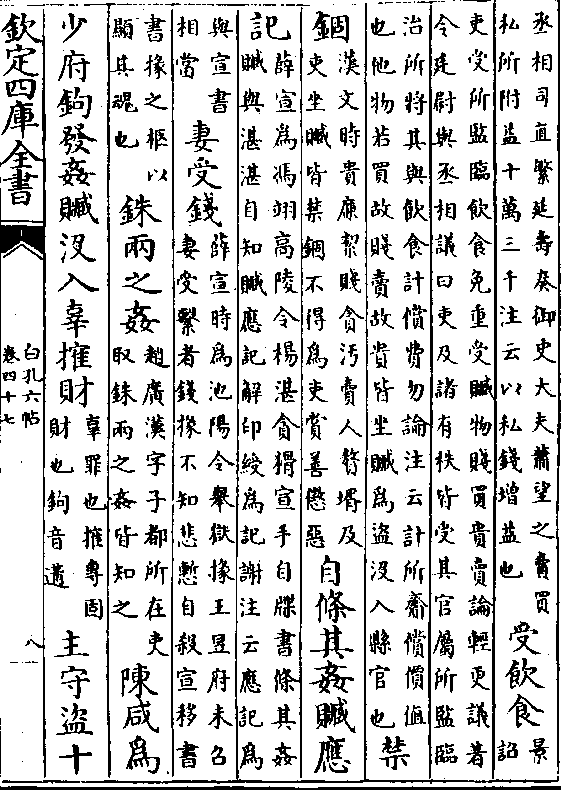 丞相司直繁延壽奏御史大夫蕭望之賣買
私所附益十萬三千注云以私錢增益也
受飲食
景
詔
吏受所監臨飲食免重受贓物賤買貴賣論輕更議著
令廷尉與丞相議曰吏及諸有秩皆受其官屬所監臨
治所將其與飲食計償費勿論注云計所齎償價值
也他物若買故賤賣故貴皆坐贓為盜沒入縣官也
禁
錮
漢文時貴廉絜賤貪汚賣人贅壻及
吏坐贓皆禁錮不得為吏賞善懲惡
自條其姦贓應
記
薛宣為馮翊高陵令楊湛貪猾宣手自牒書條其姦
贓與湛湛自知贓應記解印綬為記謝注云應記為
與宣書
相當
妻受錢
薛宣時為池陽令舉獄掾王昱府未召
妻受繫者錢掾不知悲慙自殺宣移書
書掾之柩以
顯其魂也
銖兩之姦
趙廣漢字子都所在吏
取銖兩之姦皆知之
陳咸為
少府鉤發姦贓沒入辜㩁財
辜罪也㩁專固
財也鉤音遘
主守盜十
欽定四庫全書
白孔六帖
卷四十七
八